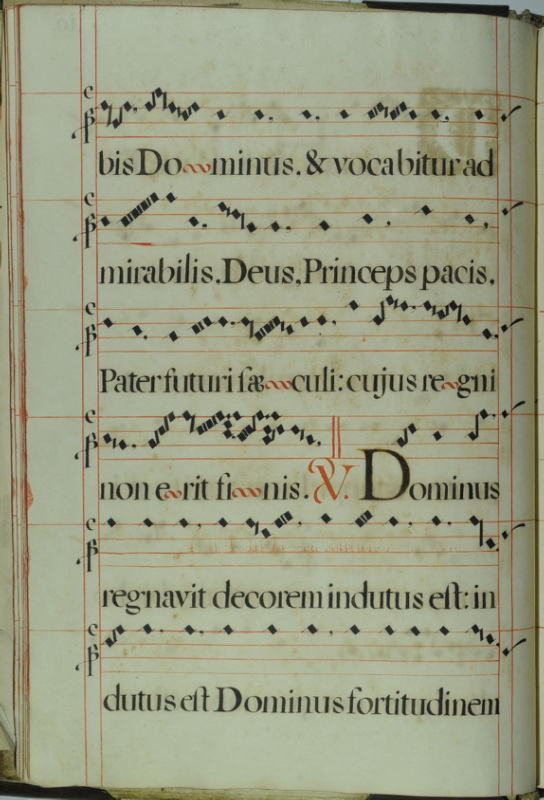 bis Dominus, & vocabitur ad
mirabilis, Deus, Princeps pacis,
Pater futuri sæculi: cujus regni
non erit finis. V. Dominus
regnavit decorem indutus est: in
dutus est Dominus fortitudinem